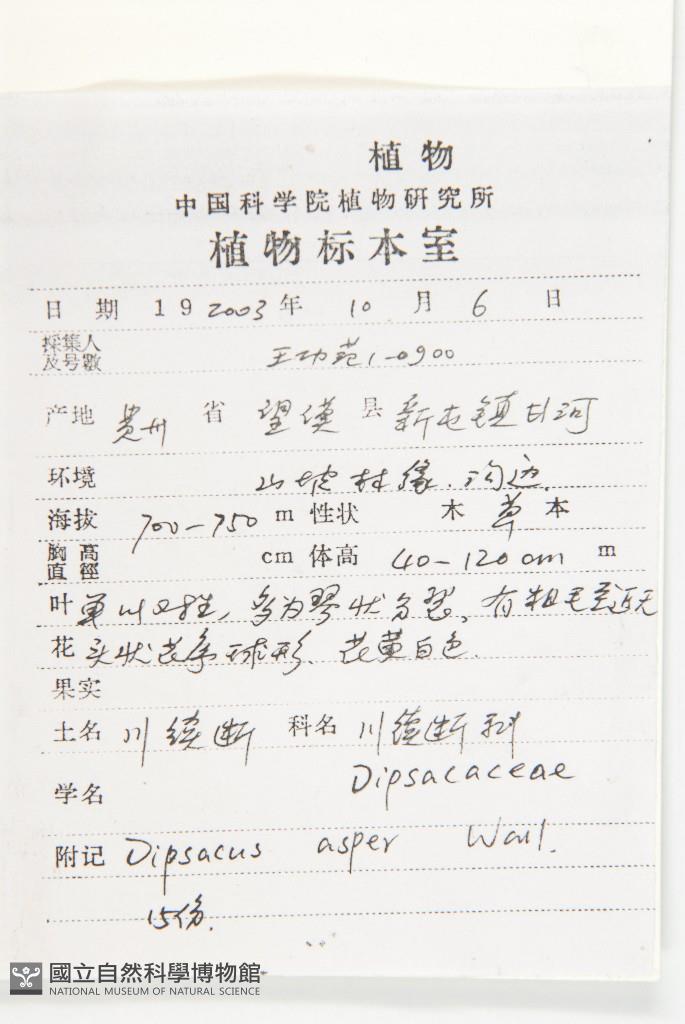 植物
中国科学院植物研究所
植物标本室
日期 19 2003 年 10 月 6 日
採集人
及号數 王功苑 1-0900
产地 贵州 省 望谟 县 新屯镇甘河
环境 山坡林缘、沟边.
海拔 700-750 m 性状 木 草 本
胸高
直徑 cm 体高 40-120cm m
叶 单叶对生, 多为琴状分裂, 有粗毛至近无
花 头状花序球形、花黄白色.
果实
土名 川续断 科名 川续断科
Dipsacaceae
学名
附记 Dipsacus asper Wall.
15份.
國立自然科學博物館
NATIONAL MUSEUM OF NATURAL SCIENCE